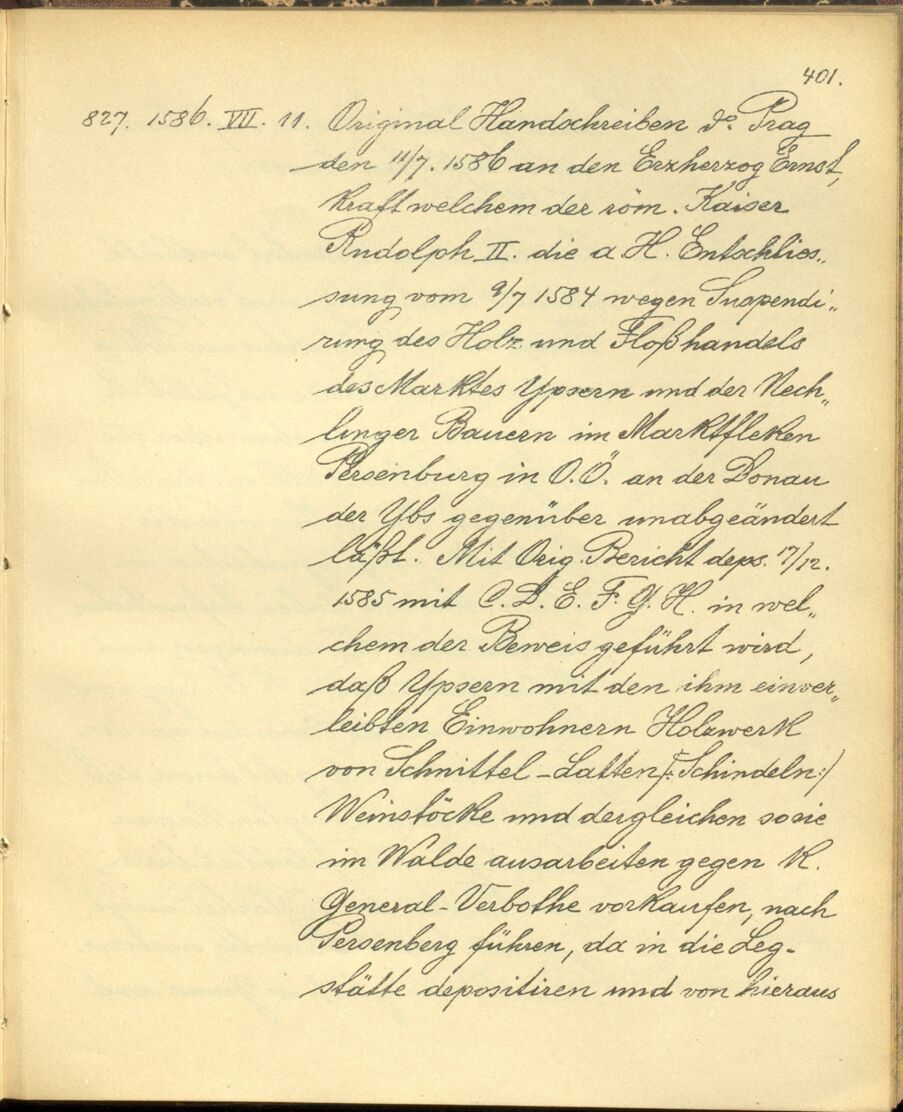 401.
827. 1586. VII. 11. Original Handschreiben do. Prag
den 11/7. 1586 an den Erzherzog Ernst,
kraft welchem der röm. Kaiser
Rudolph II. die a. H. Entschlies„
sung vom 9/7 1584 wegen Suspendi„
rung des Holz und Floßhandels
des Marktes Ypsern und der Nech„
linger Bauern im Marktfleken
Persenburg in O.Ö. an der Donau
der Ybs gegenüber unabgeändert
läßt. Mit Orig. Bericht deps. 17/12.
1585 mit C. D. E. F. G. H. in wel„
chem der Beweis geführt wird,
daß Ypsern mit den ihm einver„
leibten Einwohnern Holzwerk
von Schnittel-Latten /: Schindeln :/
Weinstöcke und dergleichen so sie
im Walde ausarbeiten gegen K.
General-Verbothe vorkaufen, nach
Persenberg führen, da in die Leg-
stätte depositiren und von hieraus